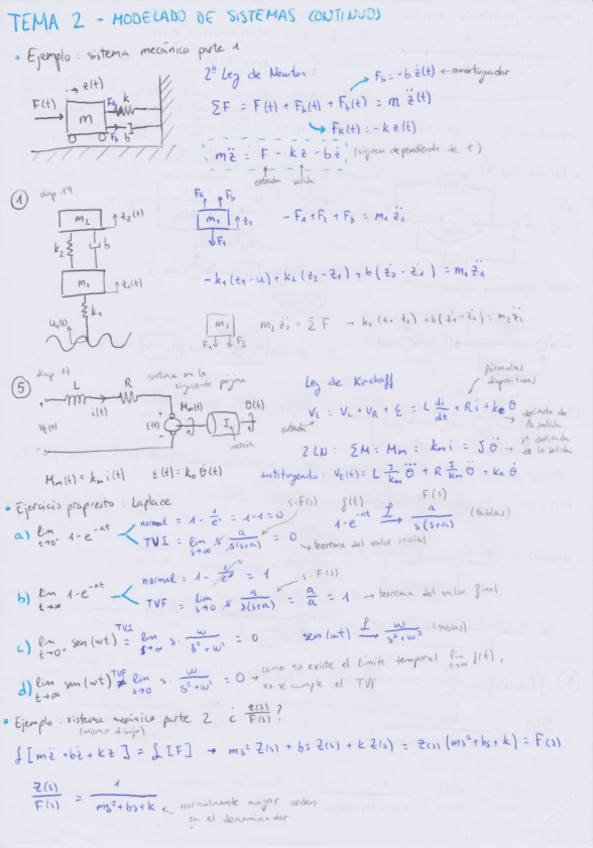 TEMA 2 - MODELADO DE SISTEMAS CONTINUOS
• Ejemplo: sistema mecánico parte 1
2ª Ley de Newton:
F_b = -b ż(t) ← amortiguador
→ z(t)
F(t) → m F_k k F_b b
ΣF = F(t) + F_k(t) + F_b(t) = m z̈(t)
F_k(t) = -k z(t)
m z̈ = F - k z - b ż (siguen dependiendo de t)
entrada salida
① diap 19
m₂ ↑ z₂(t)
k₂ b
m₁ ↑ z₁(t)
k₁
u(t)
F₂ F₃
m₁ ↑ z₁
F₁
-F₁ + F₂ + F₃ = m₁ z̈₁
-k₁(z₁-u) + k₂(z₂-z₁) + b(ż₂-ż₁) = m₁ z̈₁
m₂
m₂ z̈₂ = ΣF → k₂(z₁-z₂) + b(ż₁-ż₂) = m₂ z̈₂
⑤ diap 17
continua en la siguiente página
L R
i(t)
V_E(t) E(t) M_m(t) J_R θ(t)
inercia
M_m(t) = k_m i(t) E(t) = k_e θ̇(t)
Ley de Kirchoff
fórmulas diapositivas
V_E = V_L + V_R + E = L di/dt + R i + k_e θ̇
entrada
derivada de la salida
2 LN: ΣM = M_m = k_m i = J θ̈
derivada de la salida
sustituyendo: V_E(t) = L J/k_m θ⃛ + R J/k_m θ̈ + k_e θ̇
• Ejercicio propuesto: Laplace
a) lim t→0⁺ 1-e^-at
normal = 1 - 1/e⁰ = 1-1 = 0
TVI = lim s→∞ s a/s(s+a) = 0
s·F(s)
teorema del valor inicial
f(t) F(s)
1-e^-at → ℒ a/s(s+a) (tablas)
b) lim t→∞ 1-e^-at
normal = 1 - 1/e^∞ = 1
TVF = lim s→0 s a/s(s+a) = a/a = 1 → teorema del valor final
s·F(s)
c) lim t→0⁺ sen(wt) TVI = lim s→∞ s · w/s²+w² = 0
sen(wt) → ℒ w/s²+w² (tablas)
d) lim t→∞ sen(wt) TVF ≠ lim s→0 s · w/s²+w² = 0 → como no existe el límite temporal lim t→∞ f(t),
no se cumple el TVF
• Ejemplo: sistema mecánico parte 2 ¿ Z(s)/F(s) ?
(mismo dibujo)
ℒ[m z̈ + b ż + k z] = ℒ[F] → ms² Z(s) + bs Z(s) + k Z(s) = Z(s)(ms²+bs+k) = F(s)
Z(s)/F(s) = 1/ms²+bs+k
normalmente mayor orden
en el denominador